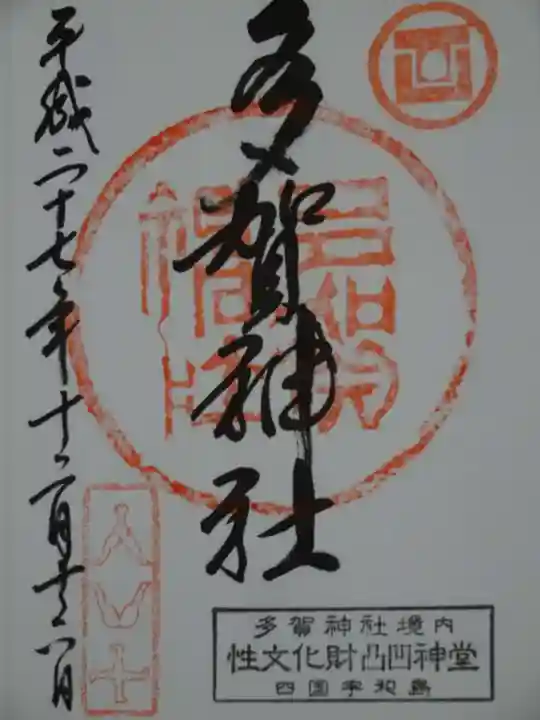 多賀神社
平成二十七年十二月十六日
多賀神社境内
性文化財凸凹神堂
四国宇和島